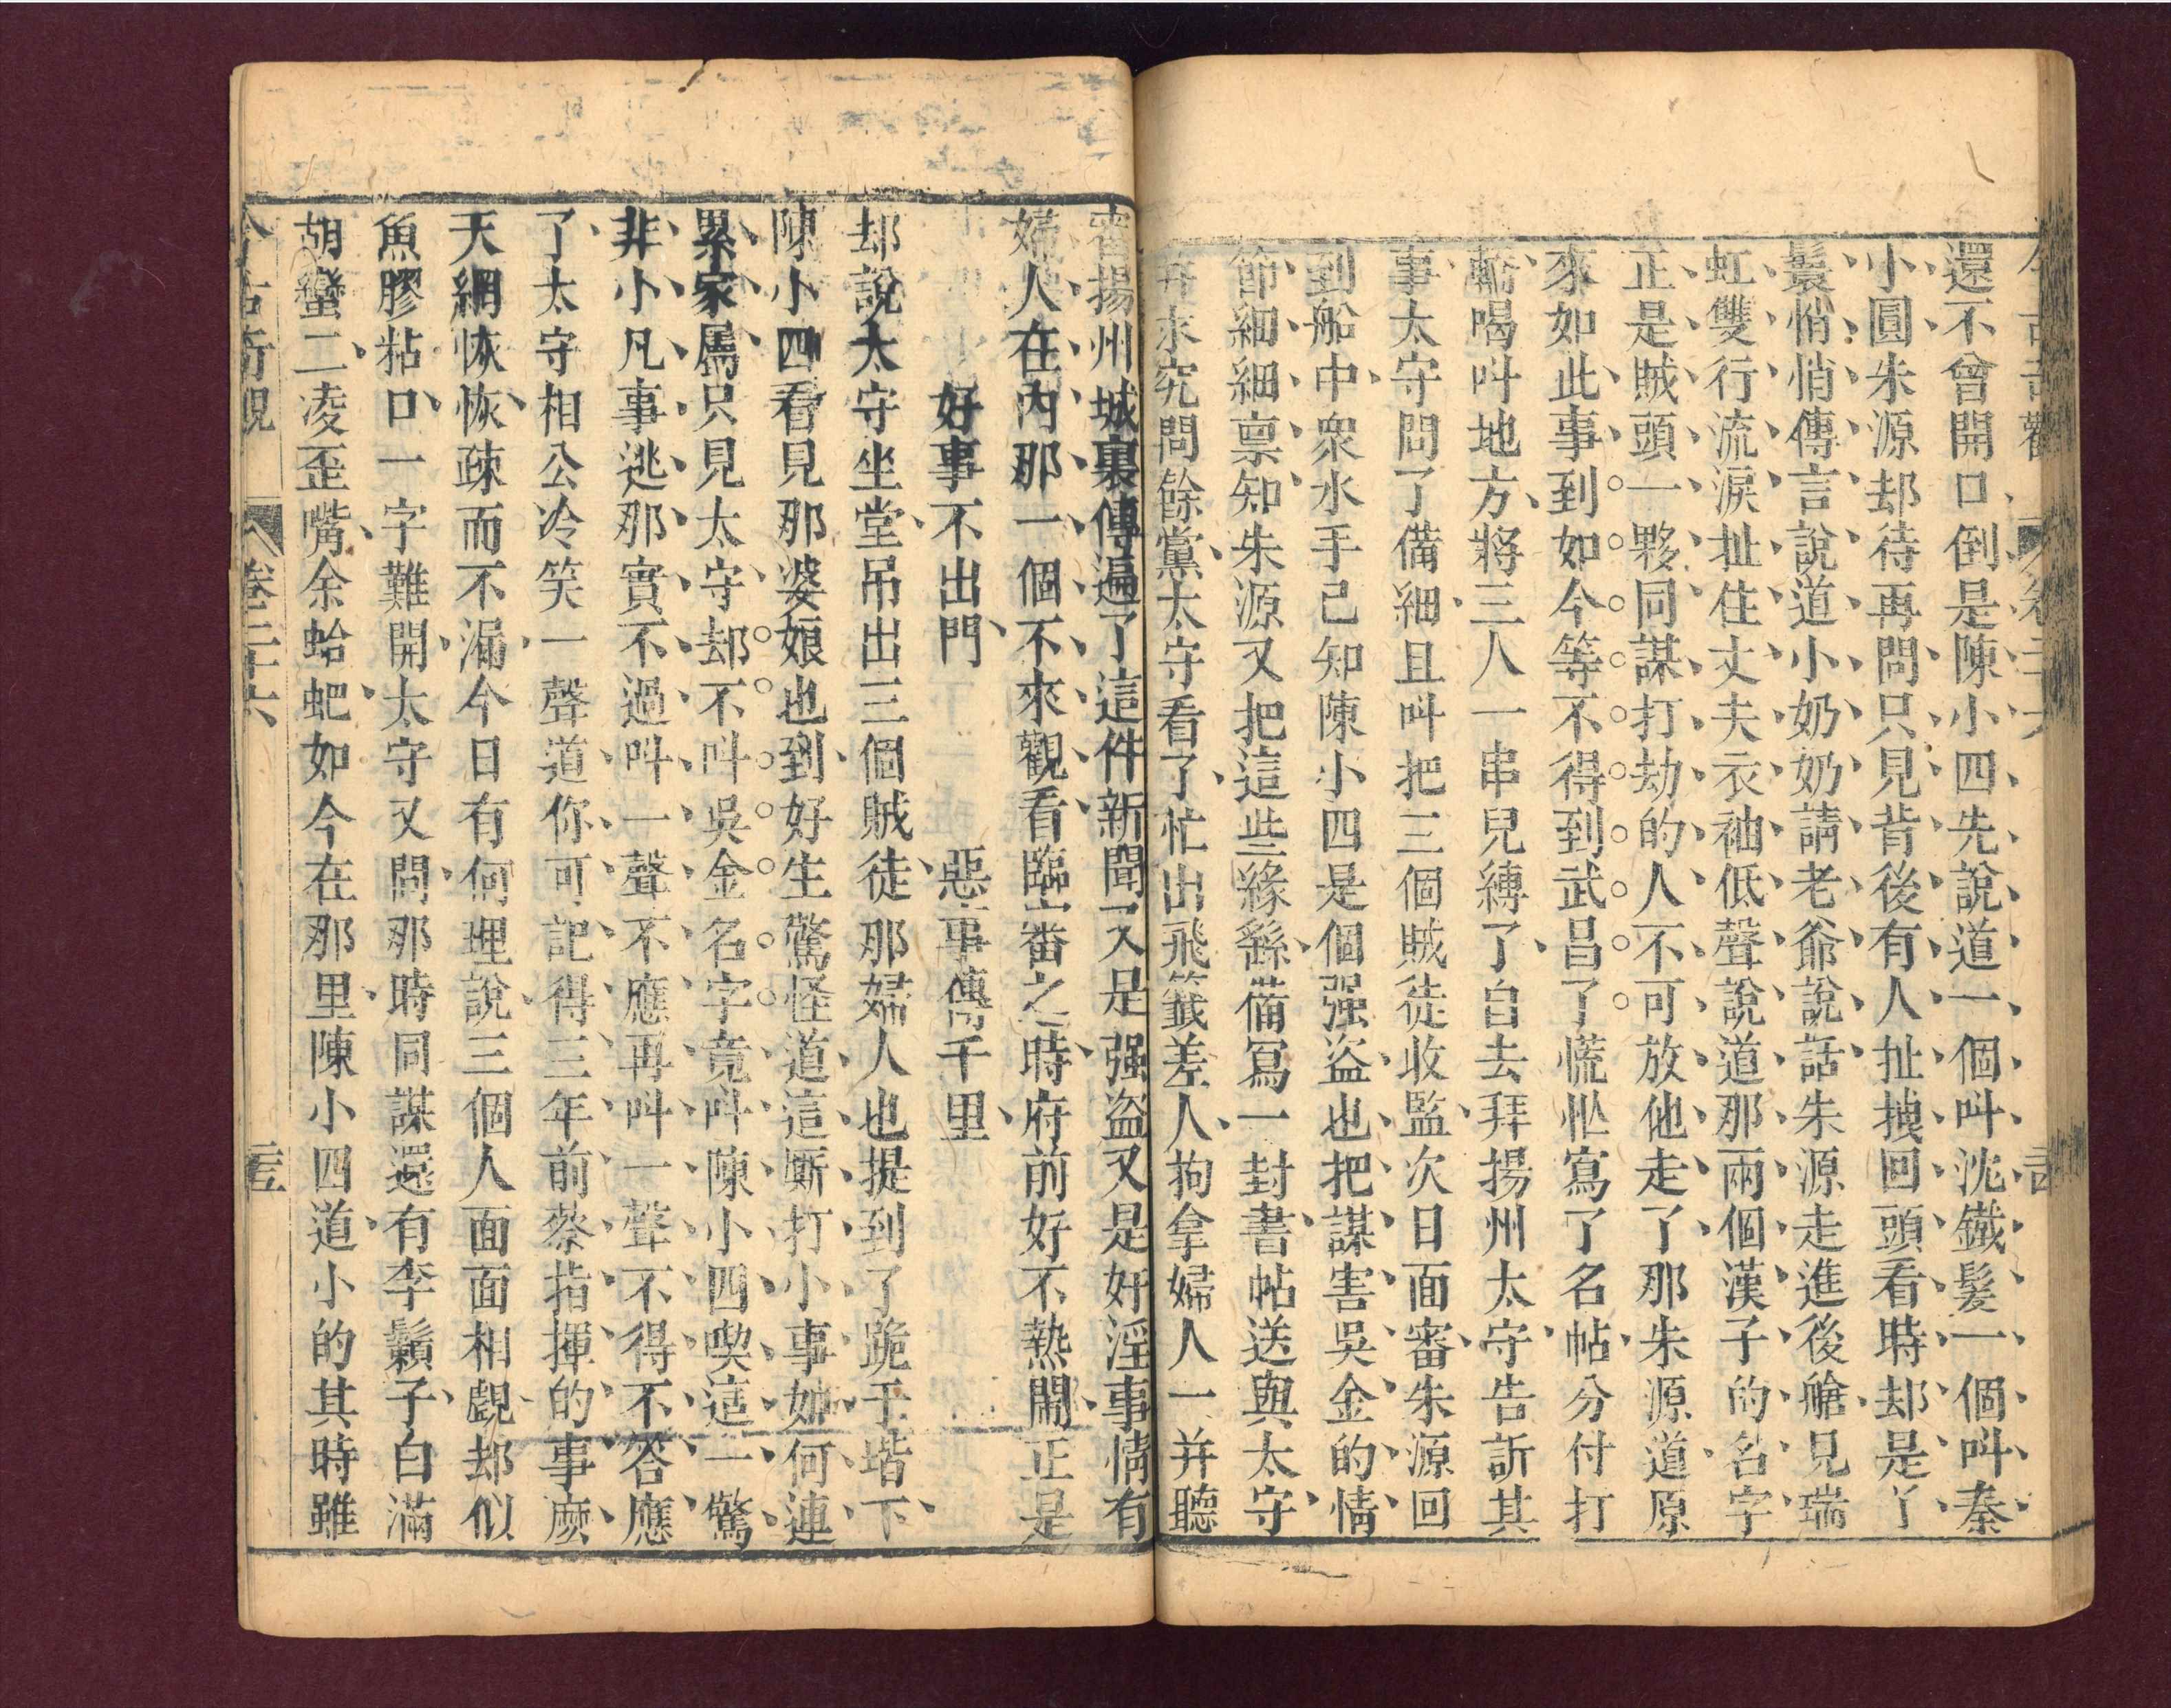 還不曾開口倒是陳小四先說道一個叫沈鐵甏一個叫秦
小圓朱源却待再問只見背後有人扯拽回頭看時却是丫
鬟悄悄傳言說道小奶奶請老爺說話朱源走進後艙見瑞
虹雙行流淚扯住丈夫衣袖低聲說道那兩個漢子的名字
正是賊頭一夥同謀打劫的人不可放他走了那朱源道原
來如此事到如今等不得到武昌了慌忙寫了名帖分付打
轎喝叫地方將三人一串兒縛了自去拜揚州太守告訴其
事太守問了備細且叫把三個賊徒收監次日面審朱源回
到船中衆水手已知陳小四是個强盗也把謀害吳金的情
節細細禀知朱源又把這些緣繇備寫一封書帖送與太守
并求究問餘黨太守看了忙出飛籤差人拘拿婦人一并聽
審揚州城裏傳遍了這件新聞又是强盗又是奸淫事情有
婦人在內那一個不來觀看臨審之時府前好不熱鬧正是
好事不出門 惡事傳千里
却說太守坐堂吊出三個賊徒那婦人也提到了跪于堦下
陳小四看見那婆娘也到好生驚怪道這厮打小事如何連
累家屬只見太守却不叫吳金名字竟叫陳小四喫這一驚
非小凡事逃那實不過叫一聲不應再叫一聲不得不答應
了太守相公冷笑一聲道你可記得三年前蔡指揮的事麽
天網恢恢疎而不漏今日有何理說三個人面面相覷却似
魚膠粘口一字難開太守又問那時同謀還有李鬍子白滿
胡蠻二凌歪嘴余蛤蚆如今在那里陳小四道小的其時雖
今古奇觀 卷三十六